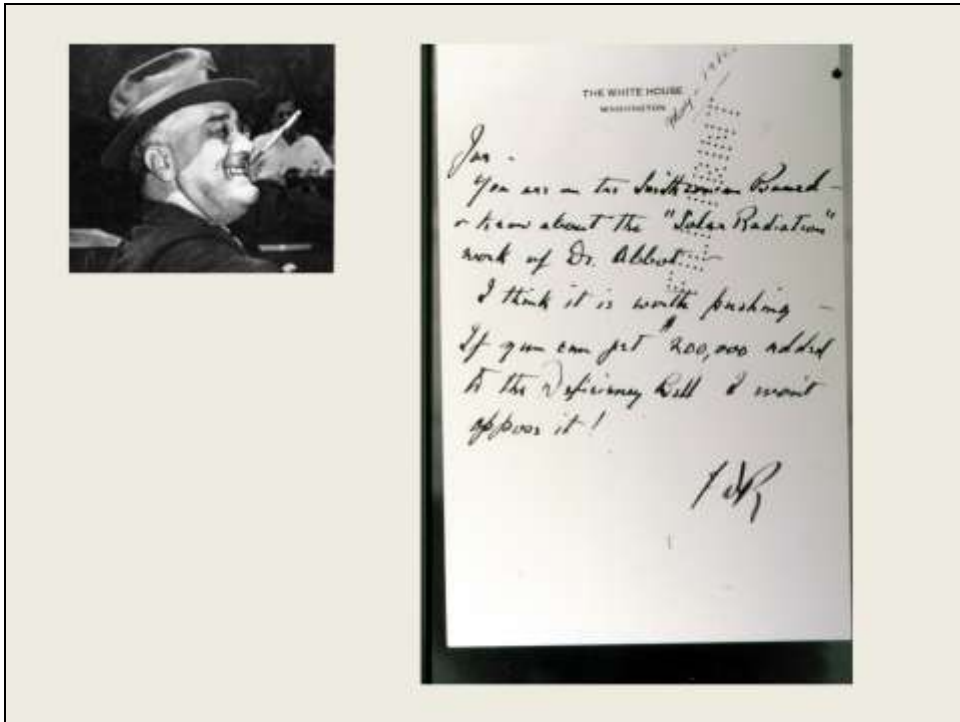 THE WHITE HOUSE
WASHINGTON
You are on the Smithsonian Board —
& know about the "Solar Radiation"
work of Dr. Abbot.
I think it is worth pushing —
If you can get $200,000 added
to the Deficiency Bill I won't
oppose it!
FDR